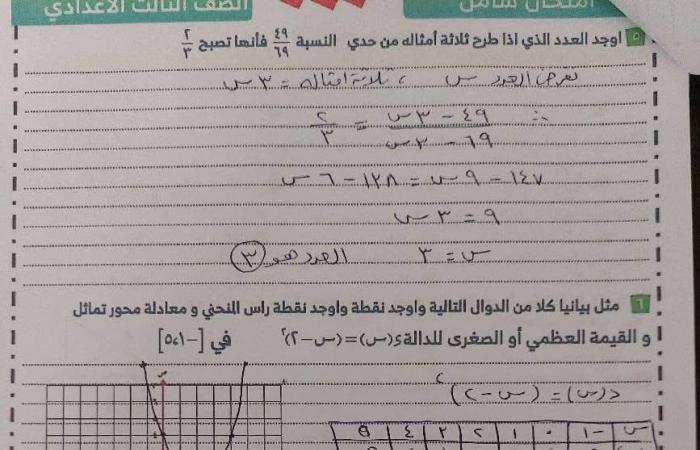 امتحان شامل
الصف الثالث الاعدادي
٥ اوجد العدد الذي اذا طرح ثلاثة أمثاله من حدي النسبة ٤٩/٦٩ فأنها تصبح ٢/٣
نفرض العدد س ، ثلاثة امثاله = ٣س
∴ (٤٩ - ٣س)/(٦٩ - ٣س) = ٢/٣
١٤٧ - ٩س = ١٣٨ - ٦س
٩ = ٣س
س = ٣ العدد هو ٣
٦ مثل بيانيا كلا من الدوال التالية واوجد نقطة واوجد نقطة راس المنحني و معادلة محور تماثل
و القيمة العظمي أو الصغرى للدالة د(س)=(س-٢)² في [-١،٥]
د(س) = (س-٢)²
س -١ ٠ ١ ٢ ٣ ٤ ٥